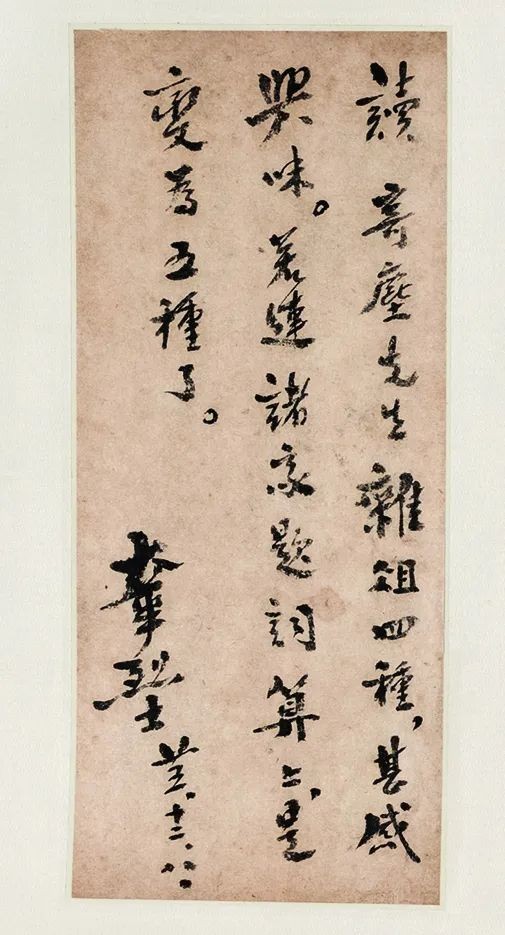 讀寄塵先生雜俎四種，甚感
興味。若連諸家題詞算上，是
變為五種了。
大華烈士 廿三、十二、八